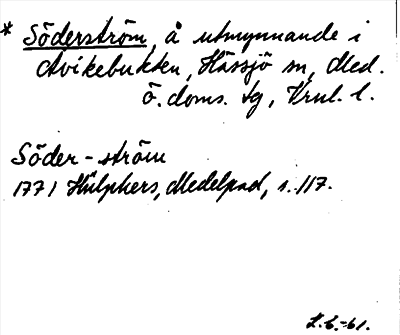 * Söderström, å utmynnande i
Avikebukten, Hässjö sn, Med.
ö. doms. tg, Vrnl. l.
Söder-ström
1771 Hülphers, Medelpad, s. 117.
L.E.-61.